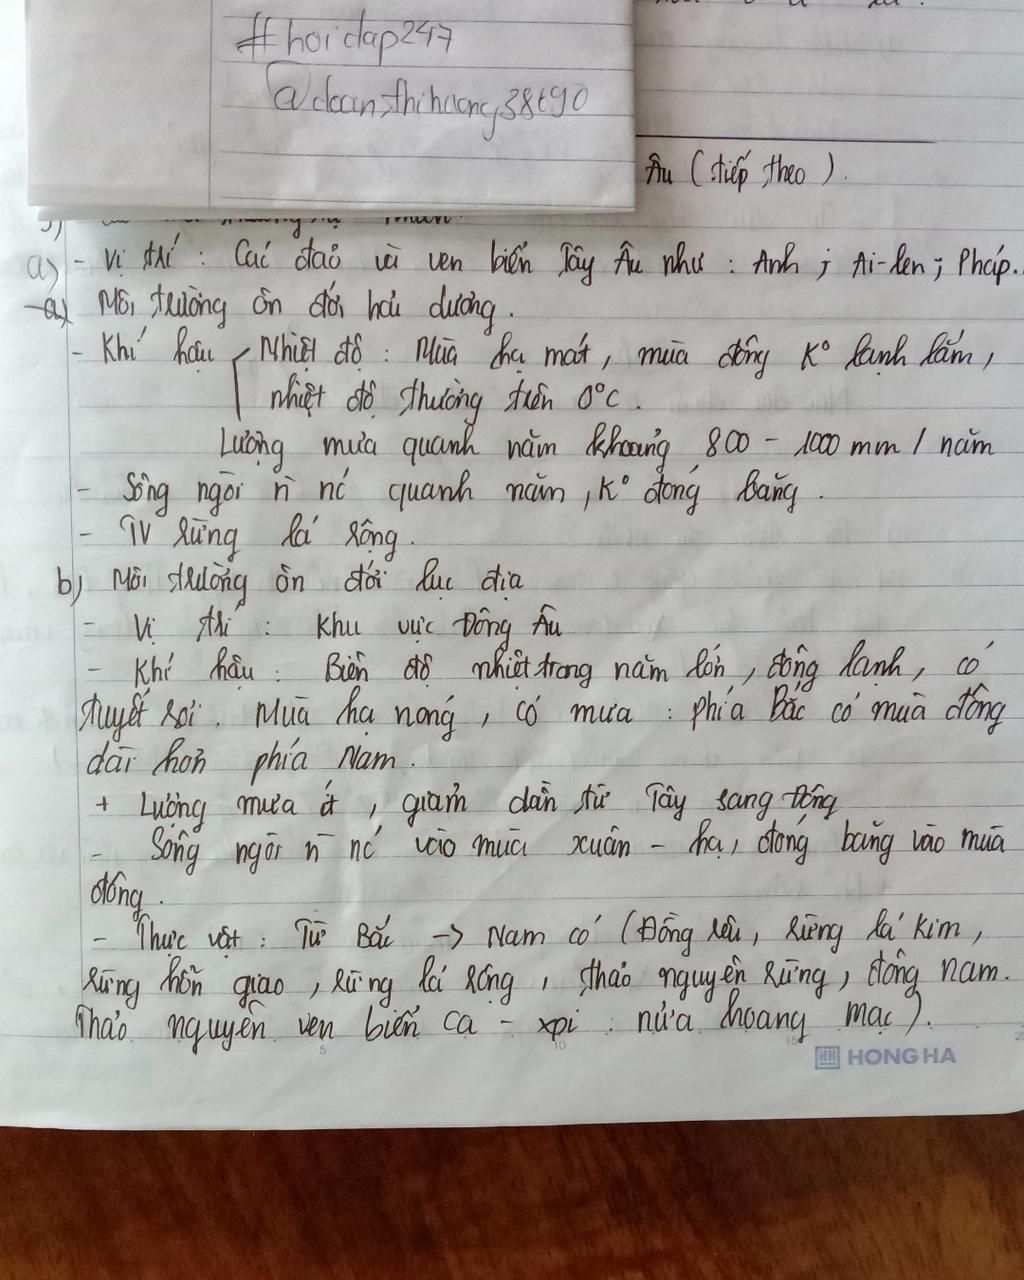 #hoidap247
@doan,thihuong38690
Âu (tiếp theo).
a) - Vị trí : Các đảo và ven biển Tây Âu như : Anh ; Ai-len ; Pháp..
a) Môi trường ôn đới hải dương.
- Khí hậu Nhiệt độ : Mùa hạ mát, mùa đông K° lạnh lắm,
nhiệt độ thường trên 0°C.
Lượng mưa quanh năm khoảng 800 - 1000 mm / năm
- Sông ngòi n nć quanh năm, K° đóng băng.
- TV rừng lá rộng.
b) Môi trường ôn đới lục địa
- Vị trí : Khu vực Đông Âu
- Khí hậu : Biên độ nhiệt trong năm lớn, đông lạnh, có
tuyết rơi. Mùa hạ nóng, có mưa : phía Bắc có mùa đông
dài hơn phía Nam.
+ Lượng mưa ít, giảm dần từ Tây sang Đông
- Sông ngòi n nć vào mùa xuân - hạ, đóng băng vào mùa
đông.
- Thực vật : Từ Bắc -> Nam có (Đồng rêu, rừng lá kim,
rừng hỗn giao, rừng lá rộng, thảo nguyên rừng, đông nam.
Thảo nguyên ven biển Ca - xpi : nửa hoang mạc).
HONG HA